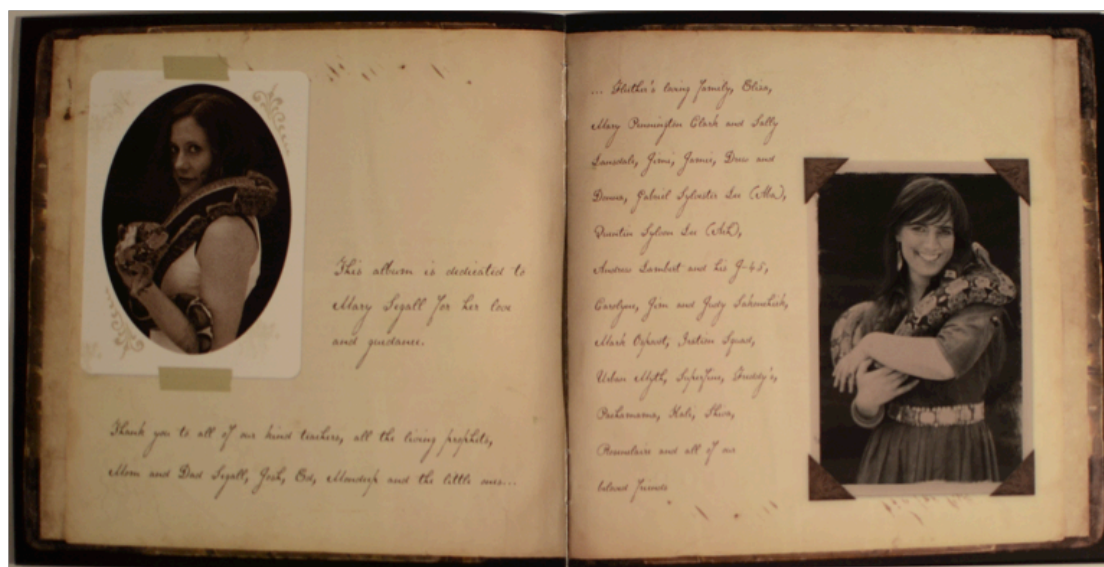 This album is dedicated to
Mary Segall for her love
and guidance.
Thank you to all of our kind teachers, all the living prophets,
Mom and Dad Segall, Josh, Ed, Mandeep and the little ones...
... loving family, Elisa,
Mary Pennington Clark and Sally
Lansdale, Jimi, Jamie, Drew and
Donna, Gabriel Sylvester Lee
Quentin Sylvan Lee
Andrew Lambert and his J-45,
Carolyn, Jim and Judy
Mark Squad,
Urban Myth, Freddy's,
Pachamama, Kali, Shiva,
and all of our
beloved friends